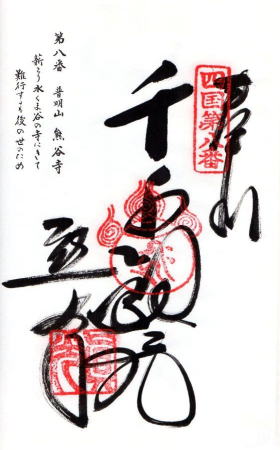 奉納
四国第八番
千手観世音
熊谷寺
第八番 普明山 熊谷寺
薪とり水くま谷の寺にきて
難行するも後の世のため